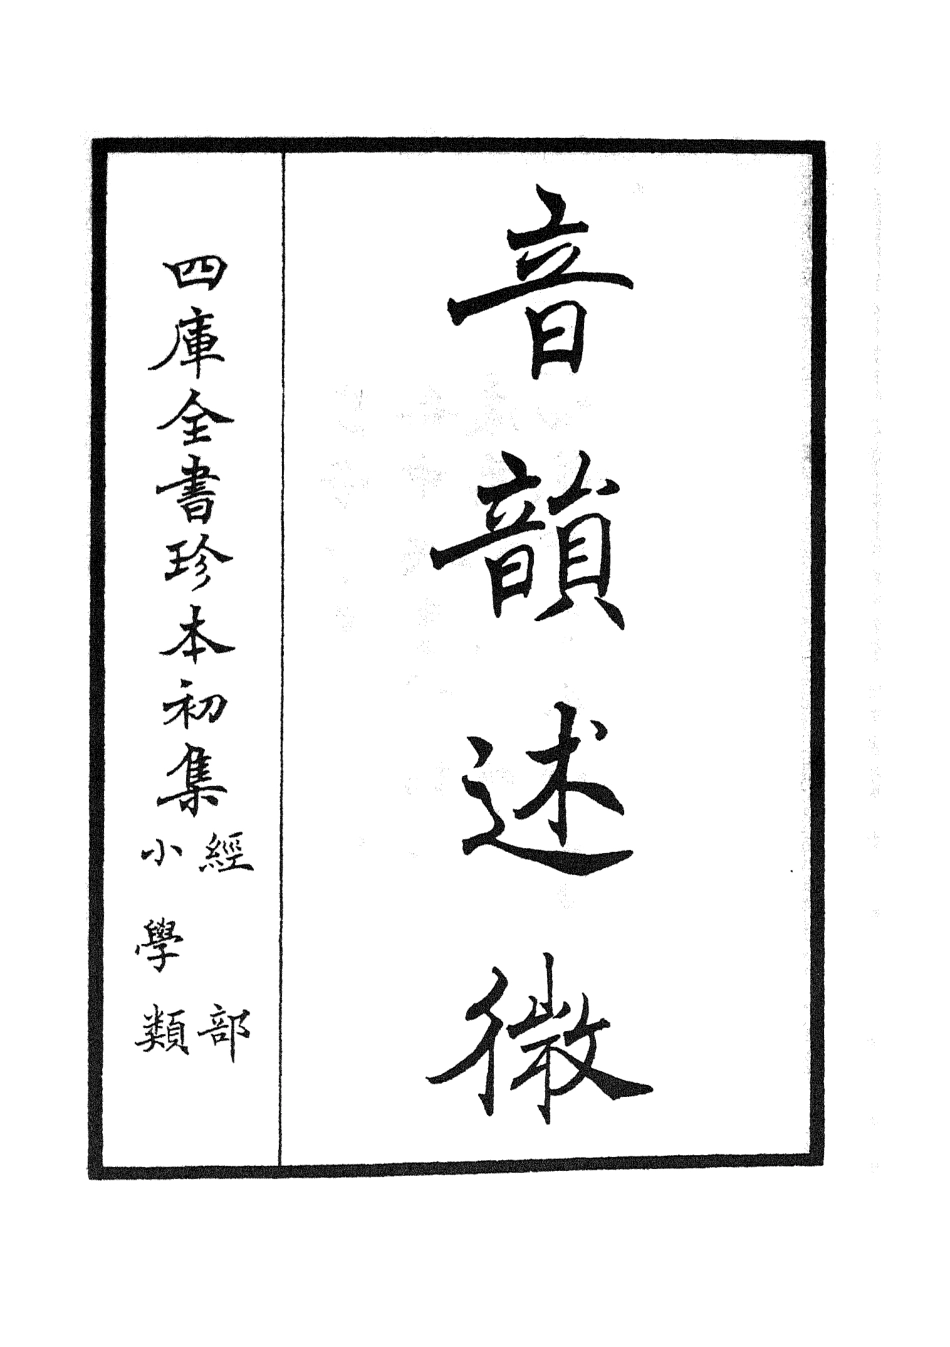 音韻述微
四庫全書珍本初集
經部
小學類